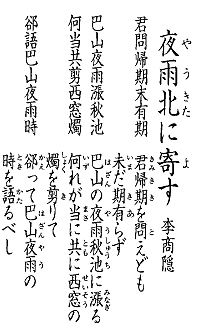 夜雨北に寄す 李商隠
君問帰期末有期
巴山夜雨漲秋池
何当共剪西窓燭
郤語巴山夜雨時
君帰期を問えども
未だ期有らず
巴山の夜雨秋池に漲る
何れが当に共に西窓の
燭を剪りて
郤って巴山夜雨の
時を語るべし